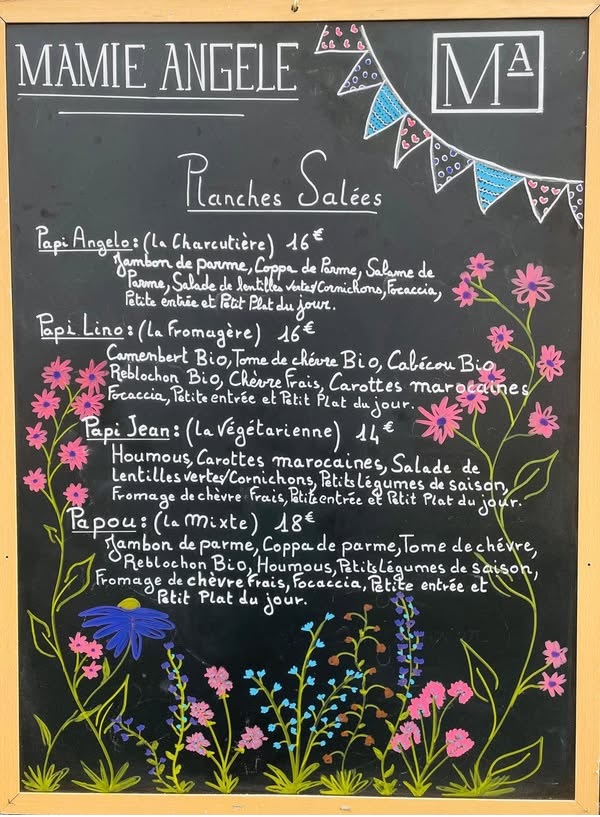 MAMIE ANGELE
MA
Planches Salées
Papi Angelo: (la Charcutière) 16€
Jambon de parme, Coppa de Parme, Salame de
Parme, Salade de lentilles vertes/Cornichons, Focaccia,
Petite entrée et Petit Plat du jour.
Papi Lino: (la Fromagère) 16€
Camembert Bio, Tome de chévre Bio, Cabécou Bio,
Reblochon Bio, Chèvre Frais, Carottes marocaines
Focaccia, Petite entrée et Petit Plat du jour.
Papi Jean: (la Végétarienne) 14€
Houmous, Carottes marocaines, Salade de
lentilles vertes/Cornichons, Petits légumes de saison,
Fromage de chèvre Frais, Petite entrée et Petit Plat du jour.
Papou: (la Mixte) 18€
Jambon de parme, Coppa de parme, Tome de chévre,
Reblochon Bio, Houmous, Petits légumes de saison,
Fromage de chèvre Frais, Focaccia, Petite entrée et
Petit Plat du jour.